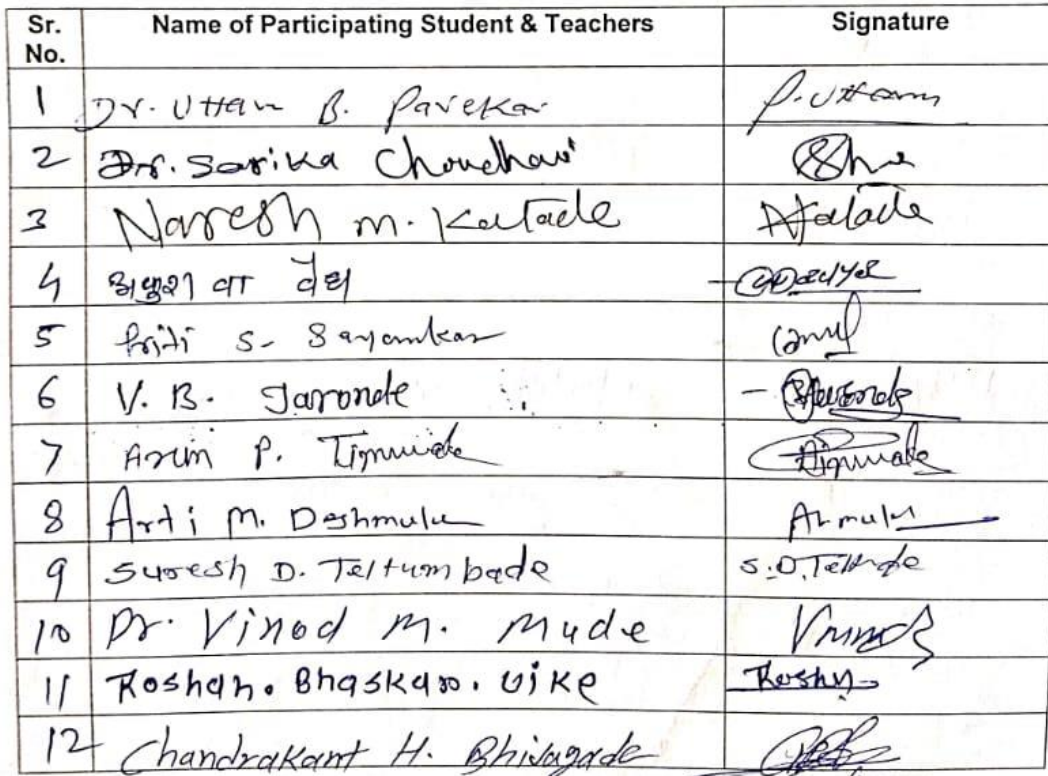 Sr. No. Name of Participating Student & Teachers Signature
1 Dr. Uttam B. Parekar P. Uttam
2 Dr. Sarika Choudhari
3 Naresh M. Katade NKatade
4 अंकुश वा वैद्य
5 Priti S. Sayamkar
6 V. B. Taronde
7 Arun P. Tignuide
8 Arti M. Deshmukh
9 Suresh D. Teltumbade S.D. Teltde
10 Dr. Vinod M. Mude
11 Roshan. Bhaskar. Uike Roshn
12 Chandrakant H. Bhivagade